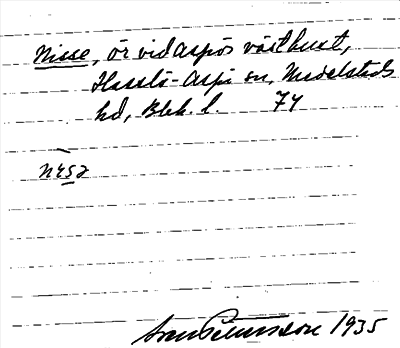 Nisse, ör vid Aspös västkust,
Hasslö-Aspö sn, Medelstads
hd, Blek. l. 74
Sven Petersson 1935